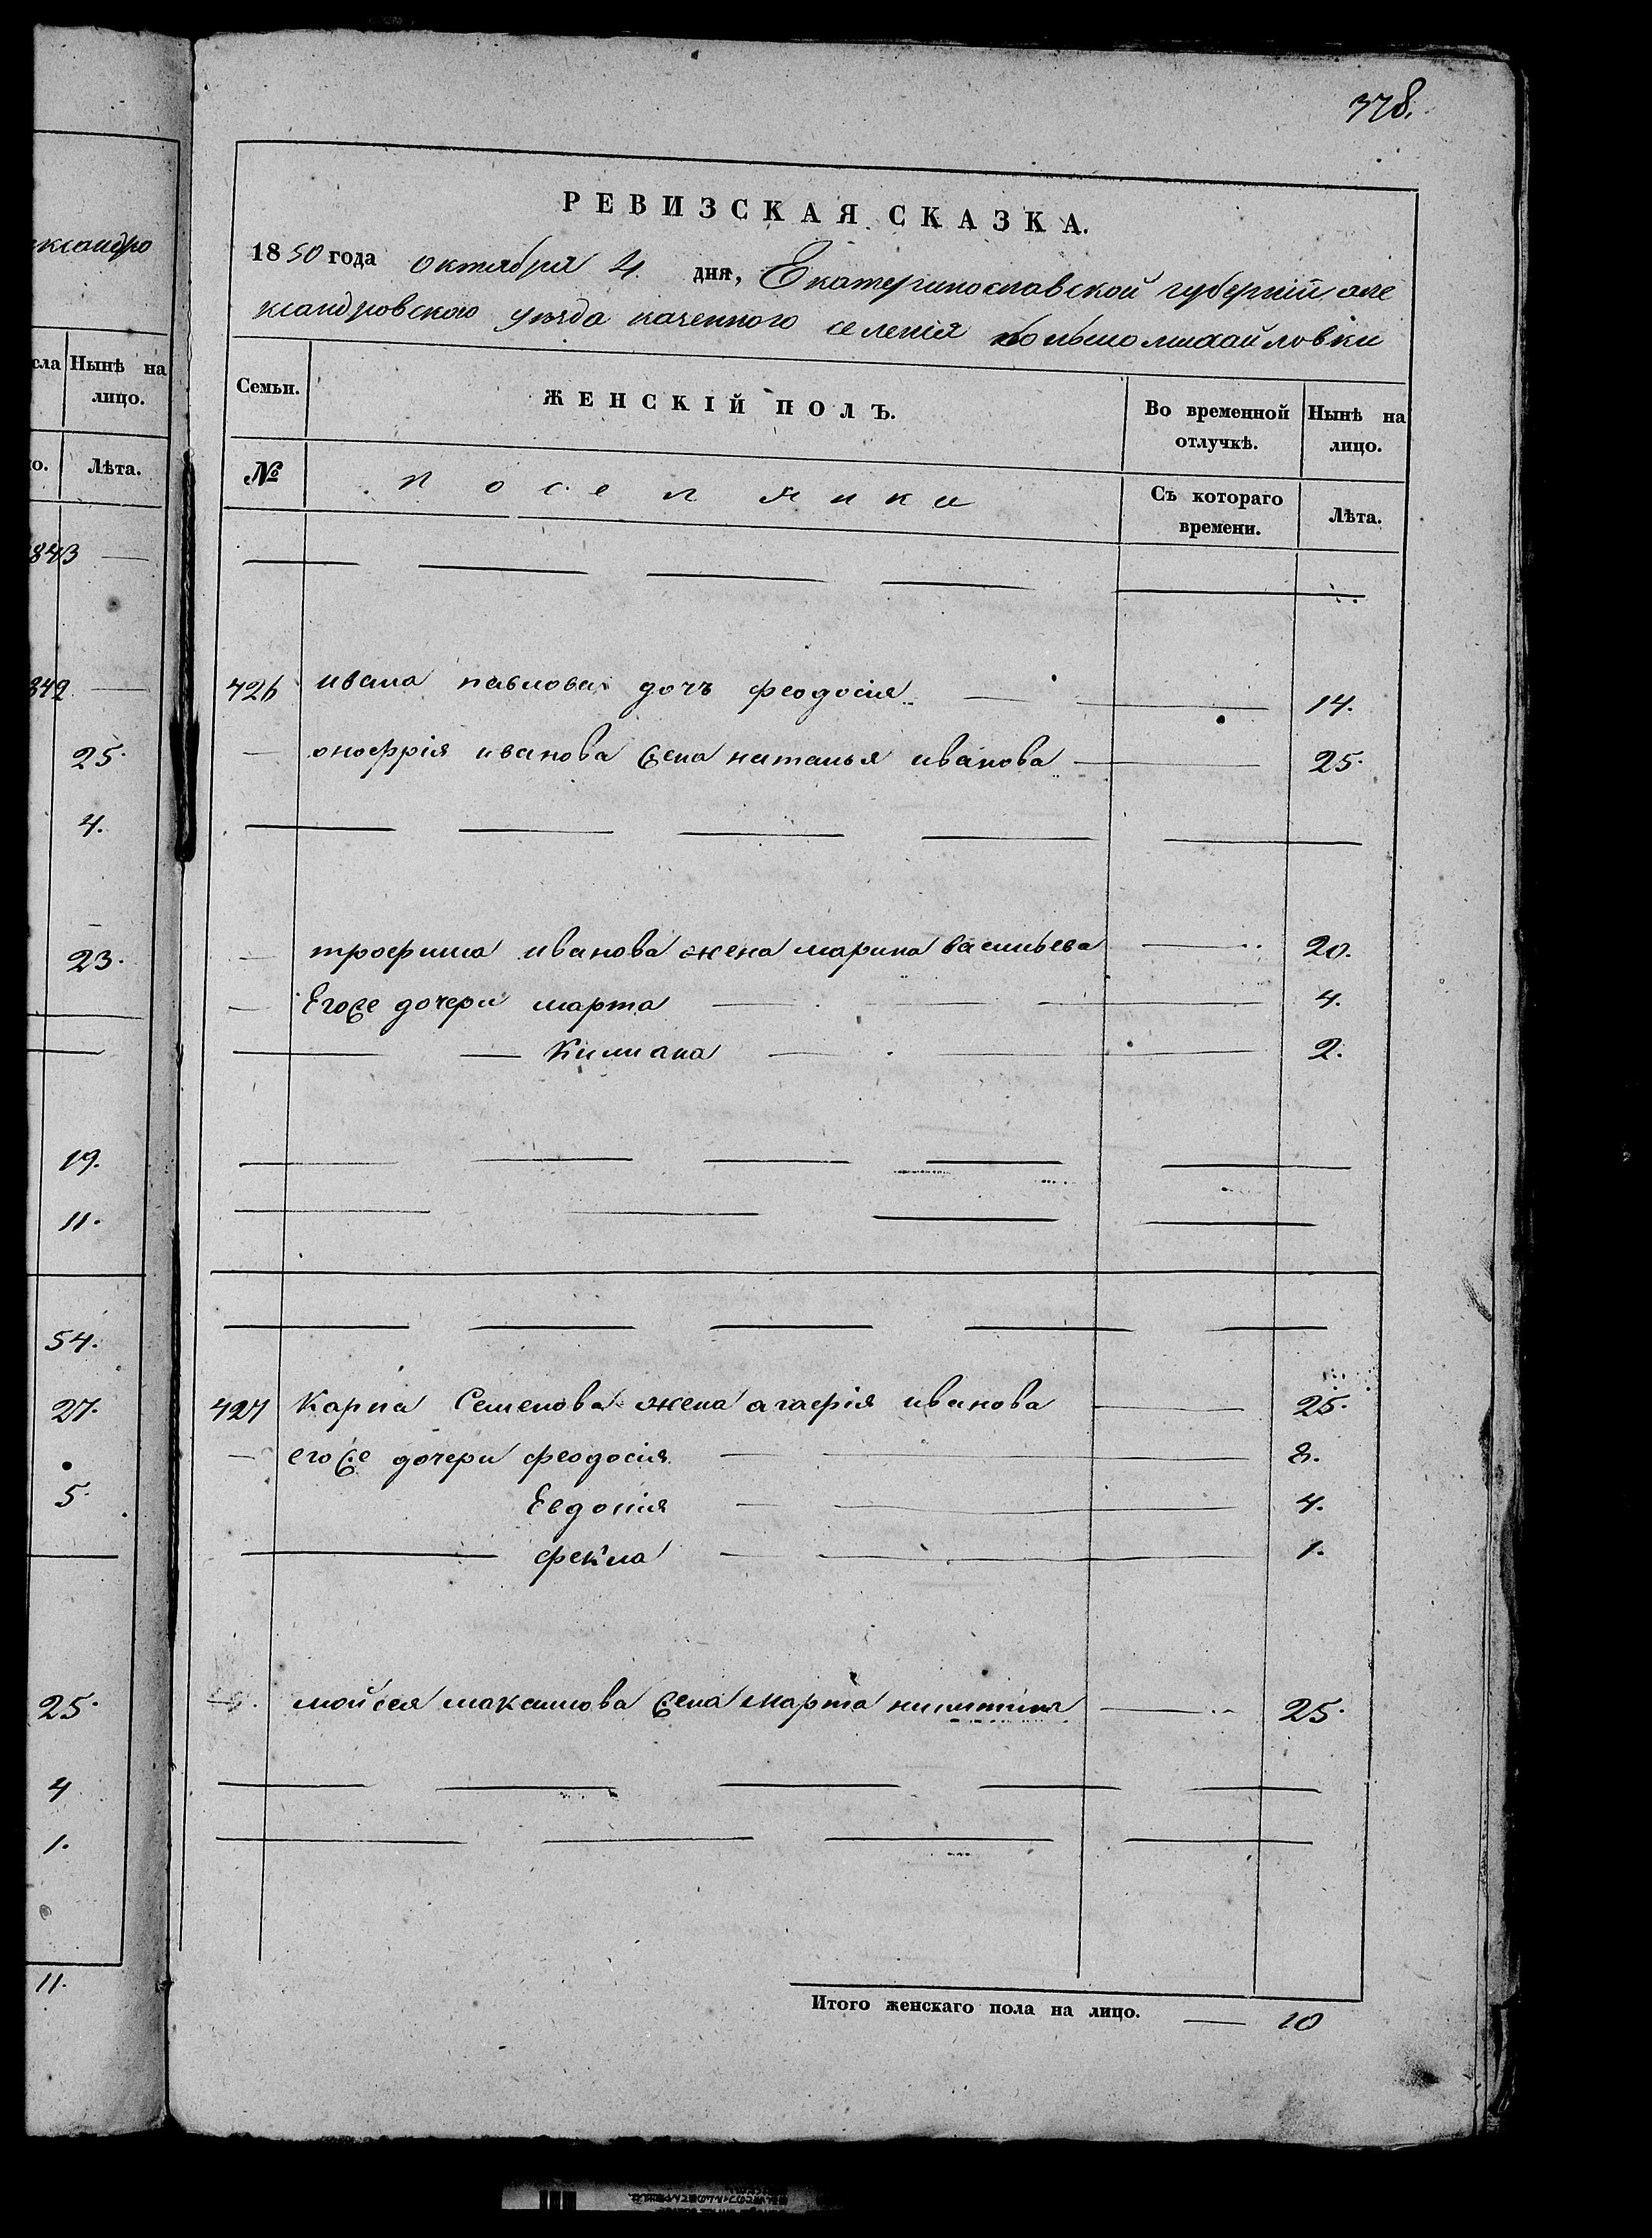 378.
РЕВИЗСКАЯ СКАЗКА.
1850 года октября 4 дня, Екатеринославской губерній але
ксандровского уезда казенного селенія большомихайловки
ксандро
Семьи. ЖЕНСКІЙ ПОЛЪ. Во временной отлучкѣ. Нынѣ на лицо.
№ поселянки Съ котораго времени. Лѣта.
сла Нынѣ на лицо.
о. Лѣта.
843
426 ивана павлова дочъ феодосія 14.
842
онофрія иванова жена наталья иванова 25.
25.
4.
трофима иванова жена марина васильева 20.
23.
Егоже дочери марта 4.
2.
19.
11.
54.
427 Карпа Семенова жена агафія иванова 25.
27.
егоже дочери феодосія 8.
5.
Евдокія 4.
фекла 1.
мойсея максимова жена марта никитина 25.
25.
4
1.
11.
Итого женскаго пола на лицо. 10